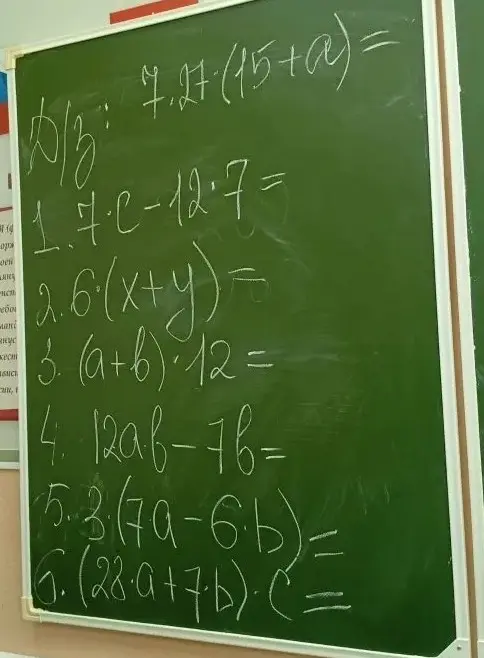 7·27·(15+a)=
Д/з:
1. 7·c-12·7=
2. 6·(x+y)=
3. (a+b)·12=
4. 12ab-7b=
5. 3·(7·a-6·b)=
6. (28·a+7·b)·c=